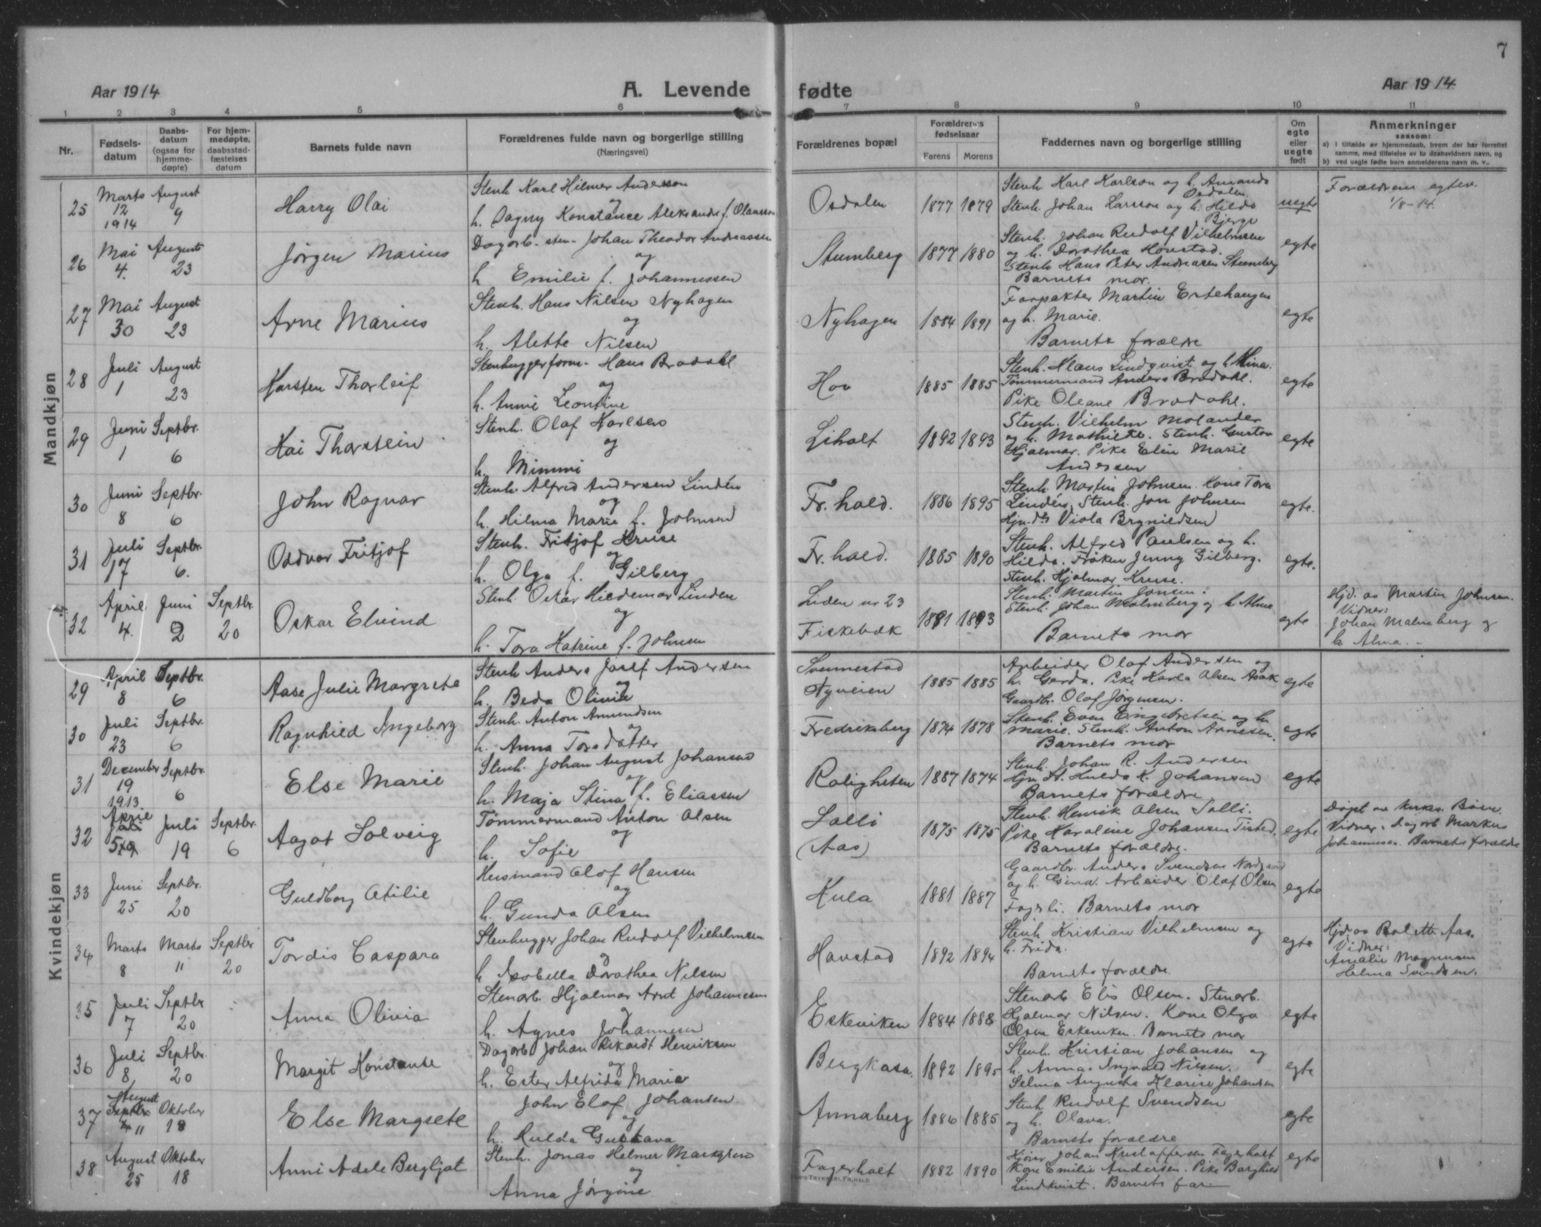 7
Aar 1914 A. Levende fødte Aar 1914
1 2 3 4 5 6 7 8 9 10 11
Nr. Fødsels-datum Daabs-datum (ogsaa for hjemme-døpte) For hjem-medøpte, daabsstad-fæstelses datum Barnets fulde navn Forældrenes fulde navn og borgerlige stilling (Næringsvei) Forældrenes bopæl Forældrenes fødselsaar Farens Morens Faddernes navn og borgerlige stilling Om egte eller uegte født Anmerkninger saasom:
a) i tilfælde av hjemmedaab, hvem der har forrettet samme, med tilføielse av to daabsvidners navn, og
b) ved uegte fødte barn anmelderens navn m. v.
Mandkjøn
25 Marts 12 1914 August 9 Harry Olai Stenh. Karl Hilmer Anderson og h. Dagny Konstance Aleksandra f. Olausson Osdalen 1877 1879 Stenh. Karl Karlson og h. Amanda Osdalen Stenh. Johan Larsson og h. Hilda Bjerge uegte Forældrene egtev. 1/8-14.
26 Mai 4. August 23 Jørgen Marius Dagarb. sten. Johan Theodor Andreassen og h. Emilie f. Johannessen Stumberg 1877 1880 Stenh. Johan Rudolf Vilhelmsen og h. Dorothea Honstad. Stenh. Hans Peter Andreasen Stumberg Barnets mor. egte
27 Mai 30 August 23 Arne Marius Stenh. Hans Nilsen Nyhagen og h. Alette Nilsen Nyhagen 1884 1891 Forpakter Martin Ertehangen og h. Marie. Barnets forældre egte
28 Juli 1 August 23 Karsten Thorleif Stenhuggerform. Hans Brodahl og h. Annie Leontine Hov 1885 1885 Stenh. Klaus Lindqvist og h. Mina. Tømmermand Anders Brodahl. Pike Oleane Brodahl. egte
29 Juni 1 Septbr. 6 Kai Thorstein Stenh. Olaf Karlsen og h. Mimmi Liholt 1892 1893 Stenh. Vilhelm Molander og h. Mathilte. Stenh. Gustav Hjalmar. Pike Elin Marie Andersen egte
30 Juni 8 Septbr. 6 John Ragnar Stenh. Alfred Andersen Lindén og h. Hilma Marie f. Johnsen Fr. hald. 1886 1895 Stenh. Martin Johnsen. Kone Tora Lindén, Stenh. Jon Johnsen Viola Brynildsen egte.
31 Juli 17 Septbr. 6. Oddvar Fritjof Stenh. Fritjof Kruse og h. Olga f. Gilberg Fr. hald. 1885 1890 Stenh. Alfred Paulsen og h. Hilda. Frøken Jenny Gilberg. Stenh. Hjalmar Kruse. egte.
32 April 4. Juni 2 Septbr. 20 Oskar Elvind Stenh. Oskar Hildemar Linden og h. Tora Katrine f. Johnsen Liden nr 23 Fiskebæk 1881 1893 Stenh. Martin Jonsen. Stenh. Johan Malmberg og h. Alma Barnets mor egte Hjd. av Martin Johnsen. Vidner: Johan Malmberg og h. Alma.
Kvindekjøn
29 April 8 Septbr. 6 Aase Julie Margrete Stenh. Anders Josef Andersen og h. Beda Olivia Svennestad Nyveien 1885 1885 Arbeider Olaf Andersen og h. Garda. Pike Karla Olsen Asak Gaardbr. Olaf Jørgensen. egte
30 Juli 23 Septbr. 6 Ragnhild Ingeborg Stenh. Anton Amundsen og h. Anna Torsdatter Fredriksberg 1874 1878 Stenh. Even Engebretsen og h. Marie. Stenh. Anton Arnesen. Barnets mor egte
31 December 19 1913 Septbr. 6 Else Marie Stenh. Johan August Johansen og h. Maja Stina f. Eliassen Roligheten 1887 1874 Stenh. Johan R. Andersen Hulda K. Johansen Barnets forældre egte
32 April Juli 19 Septbr. 6 Aagot Solveig Tømmermand Anton Olsen og h. Sofie Lolli (Aas) 1875 1875 Stenh. Henrik Olsen Solli. Pike Karoline Johansen Tisted. Barnets forældre. egte Døpt av Vidner: Dagarb Markus Johannesen. Barnets forældre
33 Juni 25 Septbr. 20 Guldborg Otilie Husmand Olof Hansen og h. Gunda Olsen Hula 1881 1887 Gaardbr. Anders Svendsen og h. Gina. Arbeider Olaf Olsen Fagerli. Barnets mor egte
34 Marts 8 Marts 11 Septbr 20 Tordis Caspara Stenhugger Johan Rudolf Vilhelmsen og h. Isabella Dorothea Nilsen Havstad 1892 1894 Stenh. Kristian Vilhelmsen og h. Frida. Barnets forældre egte Hjd. av Bolette Aas Vidner: Amalie Magnussen Helma Svendsen.
35 Juli 7 Septbr 20 Anna Olivia Stenarb. Hjalmar Arnt Johannesen og h. Agnes Johannesen Eskeviken 1884 1888 Stenarb Elis Olsen. Stenarb. Hjalmar Nilsen. Kone Olga Olsen Eskeviken. Barnets mor egte
36 Juli 8 Septbr. 20 Margit Konstanse Dagarb Johan Rikardt Henriksen og h. Ester Alfrida Maria Bergkasa. 1892 1895 Stenh. Kristian Johansen og h. Anna. Ingvald Nilsen. Selma Augusta Klarise Johansen egte
37 August Septbr 11 Oktober 18 Else Margrete John Elof Johansen og h. Hulda Gustava Annaberg 1886 1885 Stenh Rudolf Svendsen og h. Olava. Barnets forældre egte
38 August 25 Oktober 18 Anni Adele Bergljot Stenh. Jonas Helmer Marsgren og Anna Jørgine Fagerholt 1882 1890 Johan Kristoffersen Fagerholt Kone Emilie Andersen. Pike Borghild Lindkvist. Barnets far egte